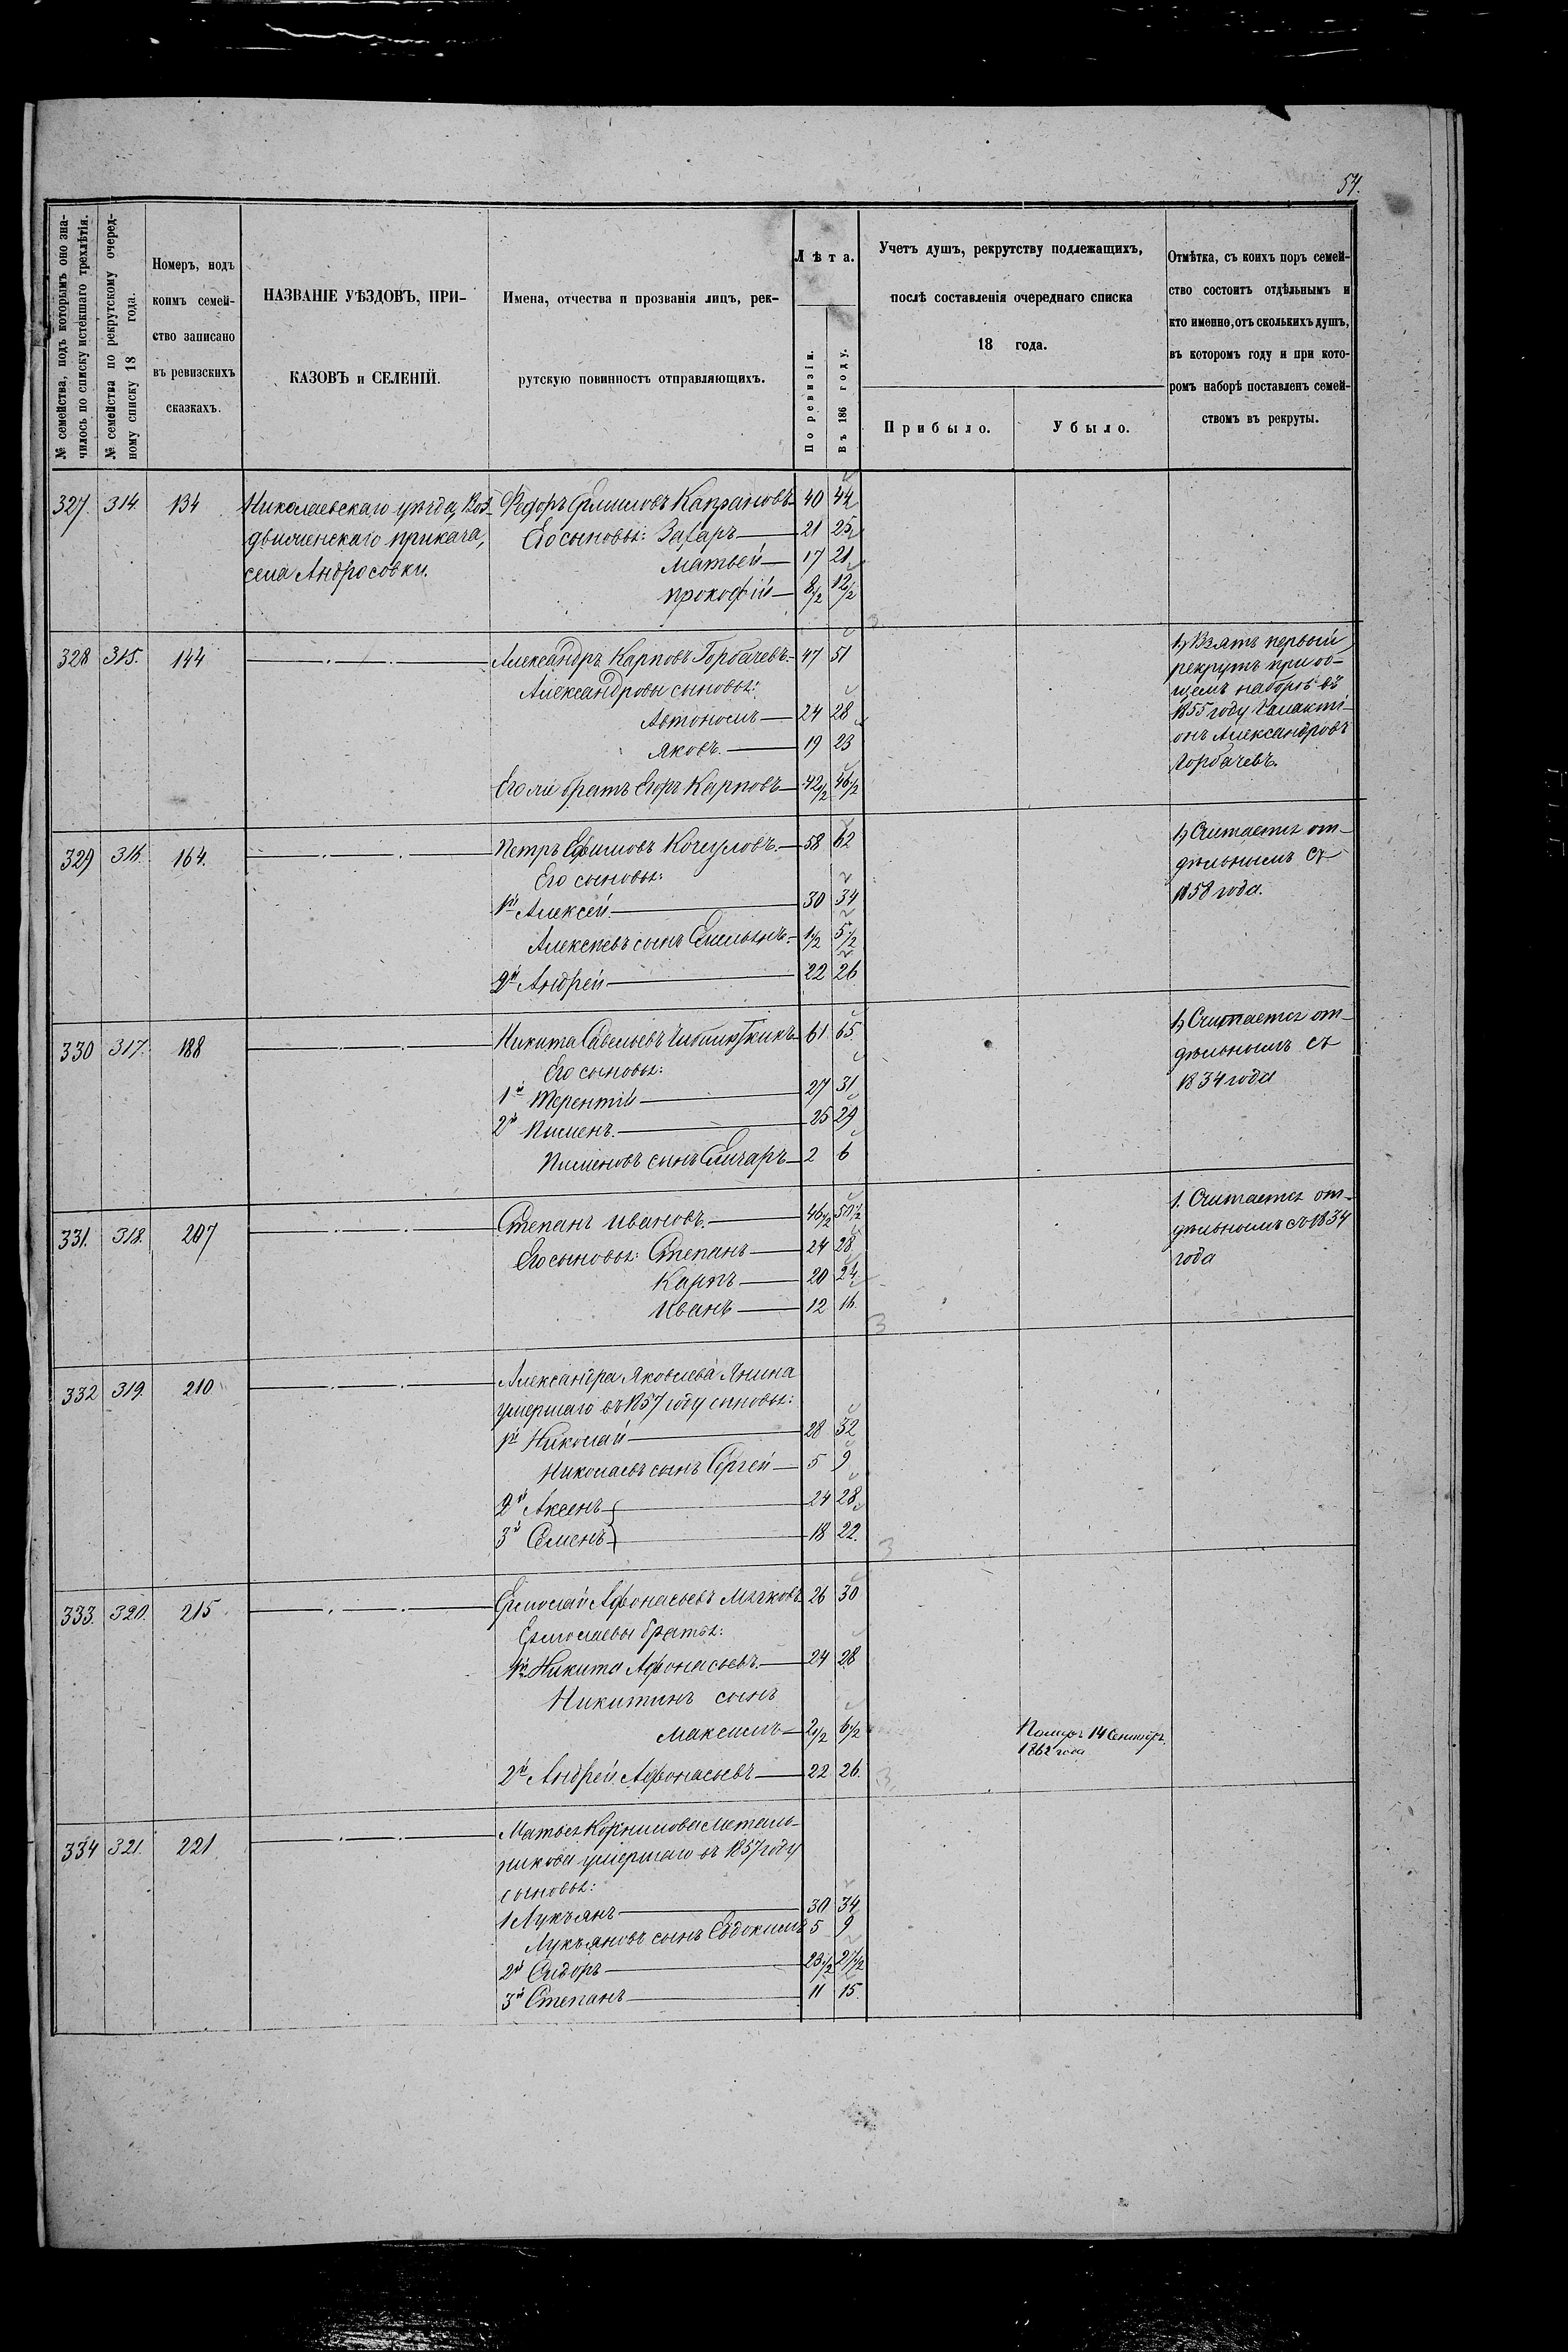 54.
№ семейства, подъ которымъ оно зна-
чилось по списку истекшаго трехлѣтія.
№ семейства по рекрутскому очеред-
ному списку 18 года.
Номеръ, подъ
коимъ семей-
ство записано
въ ревизскихъ
сказкахъ.
НАЗВАНІЕ УѢЗДОВЪ, ПРИ-
КАЗОВЪ и СЕЛЕНІЙ.
Имена, отчества и прозванія лицъ, рек-
рутскую повинность отправляющихъ.
Лѣта.
По ревизіи.
Въ 186 году.
Учетъ душъ, рекрутству подлежащихъ,
послѣ составленія очереднаго списка
18 года.
Прибыло.
Убыло.
Отмѣтка, съ коихъ поръ семей-
ство состоитъ отдѣльнымъ и
кто именно, отъ сколькихъ душъ,
въ которомъ году и при кото-
ромъ наборѣ поставленъ семей-
ствомъ въ рекруты.
327. 314. 134 Николаевскаго уѣзда, Воз-
движенскаго приказа,
села Андросовки.
Федоръ Капрановъ 40 44
Его сыновья: Захаръ 21 25
Матвей 17 21
Прокофій 8 1/2 12 1/2
328 315. 144 Александръ Карповъ Горбачевъ 47 51
Александровы сыновья:
Автономъ 24 28
Яковъ. 19 23
Его же братъ Егоръ Карповъ 42 1/2 46 1/2
1, Взятъ первый
рекрутъ при об-
щемъ наборѣ въ
1855 году Галакті-
онъ Александровъ
Горбачевъ.
329 316. 164. Петръ Ефимовъ 58 62
Его сыновья:
1й Алексей 30 34
Алексеевъ сынъ Емельянъ 1 1/2 5 1/2
2й Андрей 22 26
1, Считается от-
дѣльнымъ съ
1858 года.
330 317. 188 Никита Савельевъ 61 65
Его сыновья:
1й Терентій 27 31
2й Пименъ. 25 29
Пименовъ сынъ 2 6
1, Считается от-
дѣльнымъ съ
1834 года
331. 318. 207 Степанъ Ивановъ. 46 1/2 50 1/2
Его сыновья: Степанъ 24 28
Карпъ 20 24
Иванъ 12 16.
1. Считается от-
дѣльнымъ съ 1834
года
332 319. 210 Александра Яковлева Янина
умершаго въ 1857 году сыновья:
1й Николай 28 32
Николаевъ сынъ Сергей 5 9
2й Аксенъ 24 28
3й Семенъ 18 22.
333. 320. 215 Ермолай Афонасьевъ Мячковъ 26 30
Ермолаевы братья:
1й Никита Афонасьевъ 24 28
Никитинъ сынъ
Максимъ 2 1/2 6 1/2
Померъ 14 Сентября
1862 года
2й Андрей Афонасьевъ 22 26.
334 321. 221 Матвея Корнилова Металь-
никова умершаго въ 1857 году
сыновья:
1 Лукъянъ 30 34
Лукъяновъ сынъ Евдокимъ 5 9
2й Сидоръ 23 1/2 27 1/2
3й Степанъ 11 15.